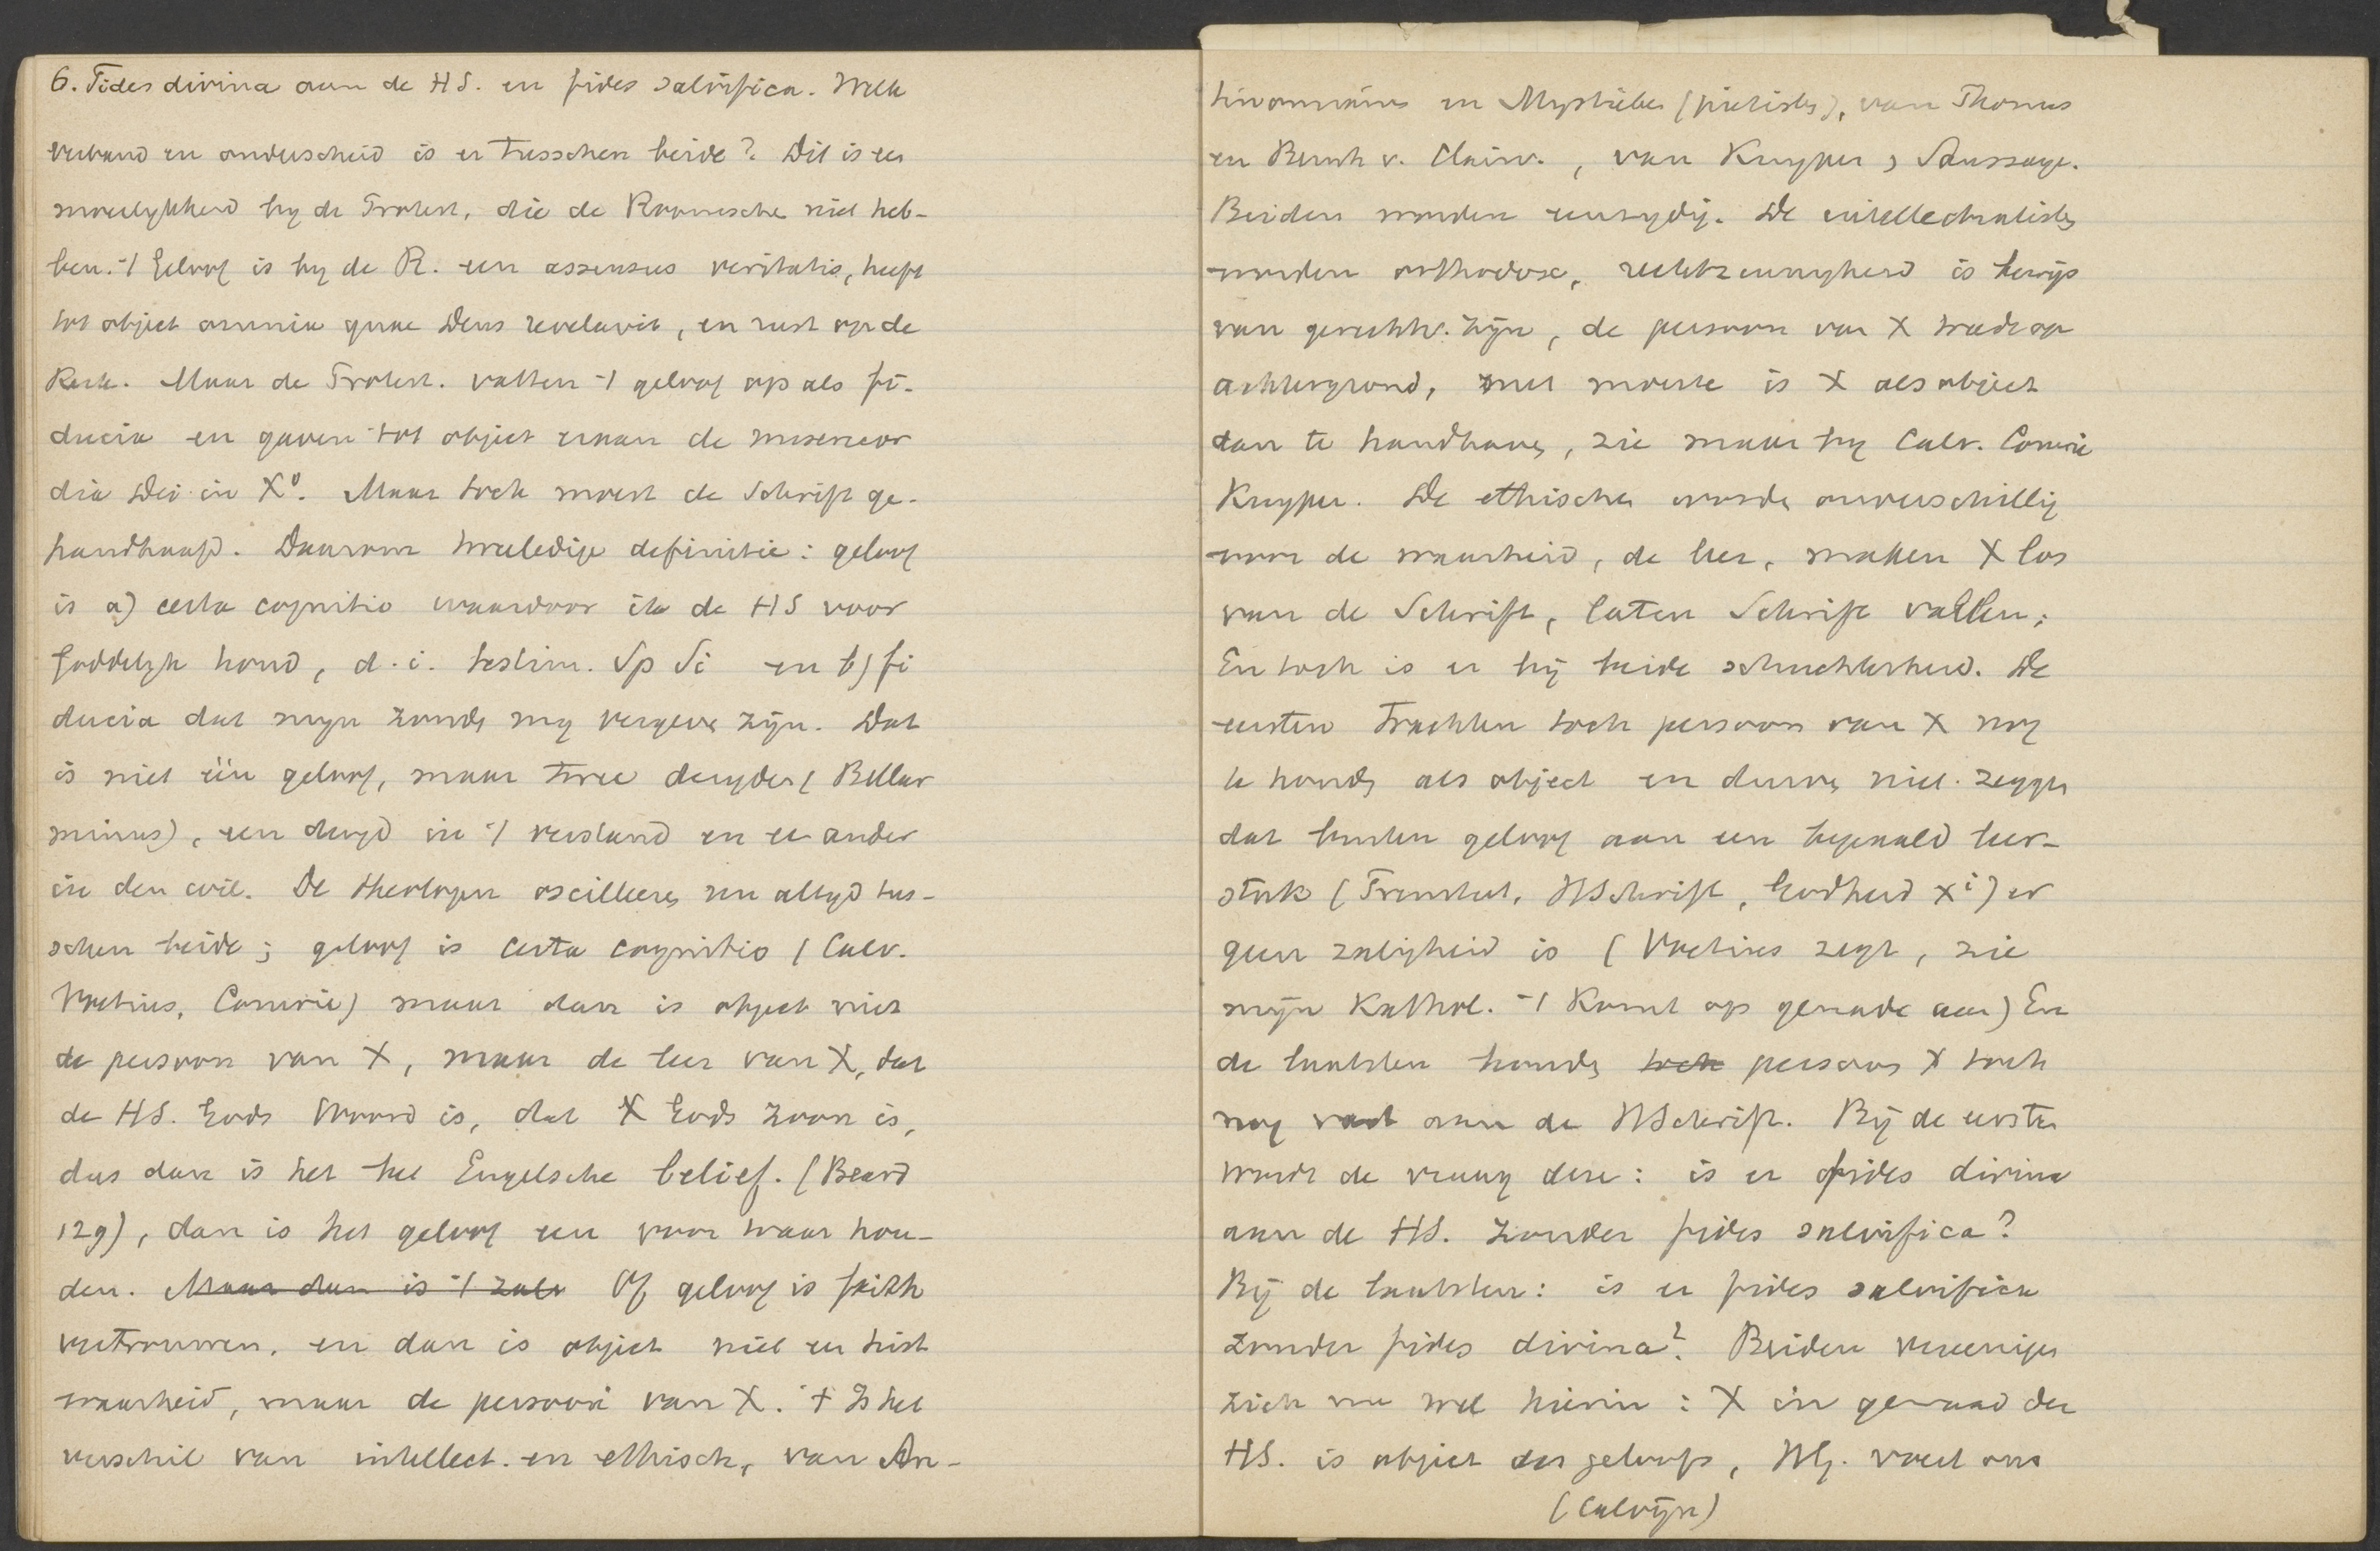 6. Fides divina aan de HS. en fides salvifica. Welk
verband en onderscheid is er tusschen beide? Dit is een
moeilykheid by de Protest., die de Roomsche niet heb-
ben. 't Geloof is by de R. een assensus veritatis, heeft
tot object omnia quae Deus revelavit, en rust op de
Kerk. Maar de Protest. vatten 't geloof op als fi-
ducia en gaven tot object eraan de misericor
dia Dei in Xo. Maar toch moest de Schrift ge-
handhaafd. Daarom tweeledige definitie: geloof
is a) certa cognitio waardoor ik de HS voor
Goddelyk houd, d.i. testim. Sp Si en b) fi
ducia dat myn zonde my vergeve zyn. Dat
is niet één geloof, maar twee deugden (Bellar
minus), een deugd in 't verstand en een ander
in den wil. De theologen oscilleeren nu altyd tus-
schen beide; geloof is certa cognitio (Calv.
Voetius, Comrie) maar dan is object niet
de persoon van X, maar de leer van X, dat
de HS. Gods Woord is, dat X Gods Zoon is,
dus dan is het het Engelsche belief. (Beard
129), dan is het geloof een voor waar hou-
den. Maar dan is 't zalv Of geloof is faith
vertrouwen, en dan is object niet een hist
waarheid, maar de persoon van X. 't Is het
verschil van intellect. en ethisch, van An-
tinomians en Mystieke (pietisten), van Thomas
en Bernh v. Clairv., van Kuyper, Saussaye.
Beiden worden eenzydig. De intellectualisten
worden orthodox, rechtzinnigheid is bewijs
van gerechtv. zijn, de persoon van X treedt op
achtergrond, met moeite is X als object
dan te handhaven, zie maar by Calv. Comrie
Kuyper. De ethische worden onverschillig
voor de waarheid, de leer, maken X los
van de Schrift, laten Schrift vallen;
En toch is er bij beide schuchterheid. De
eersten trachten toch persoon van X nog
te houden als object en durven niet zeggen
dat buiten geloof aan een bepaald leer-
stuk (Triniteit, HSchrift, Godheid Xi) er
geen zaligheid is (Voetius zegt, zie
mijn Kathol. 't Komt op genade aan) En
de laatsten houden toch persoon X toch
nog vast aan de HSchrift. Bij de eerste
wordt de vraag deze: is er fides divina
aan de HS. zonder fides salvifica?
Bij de laatsten: is er fides salvifica
zonder fides divina? Beiden vereenigen
zich nu wel hierin: X in gewaad der
HS. is object des geloofs, Hij. voert ons
(Calvijn)